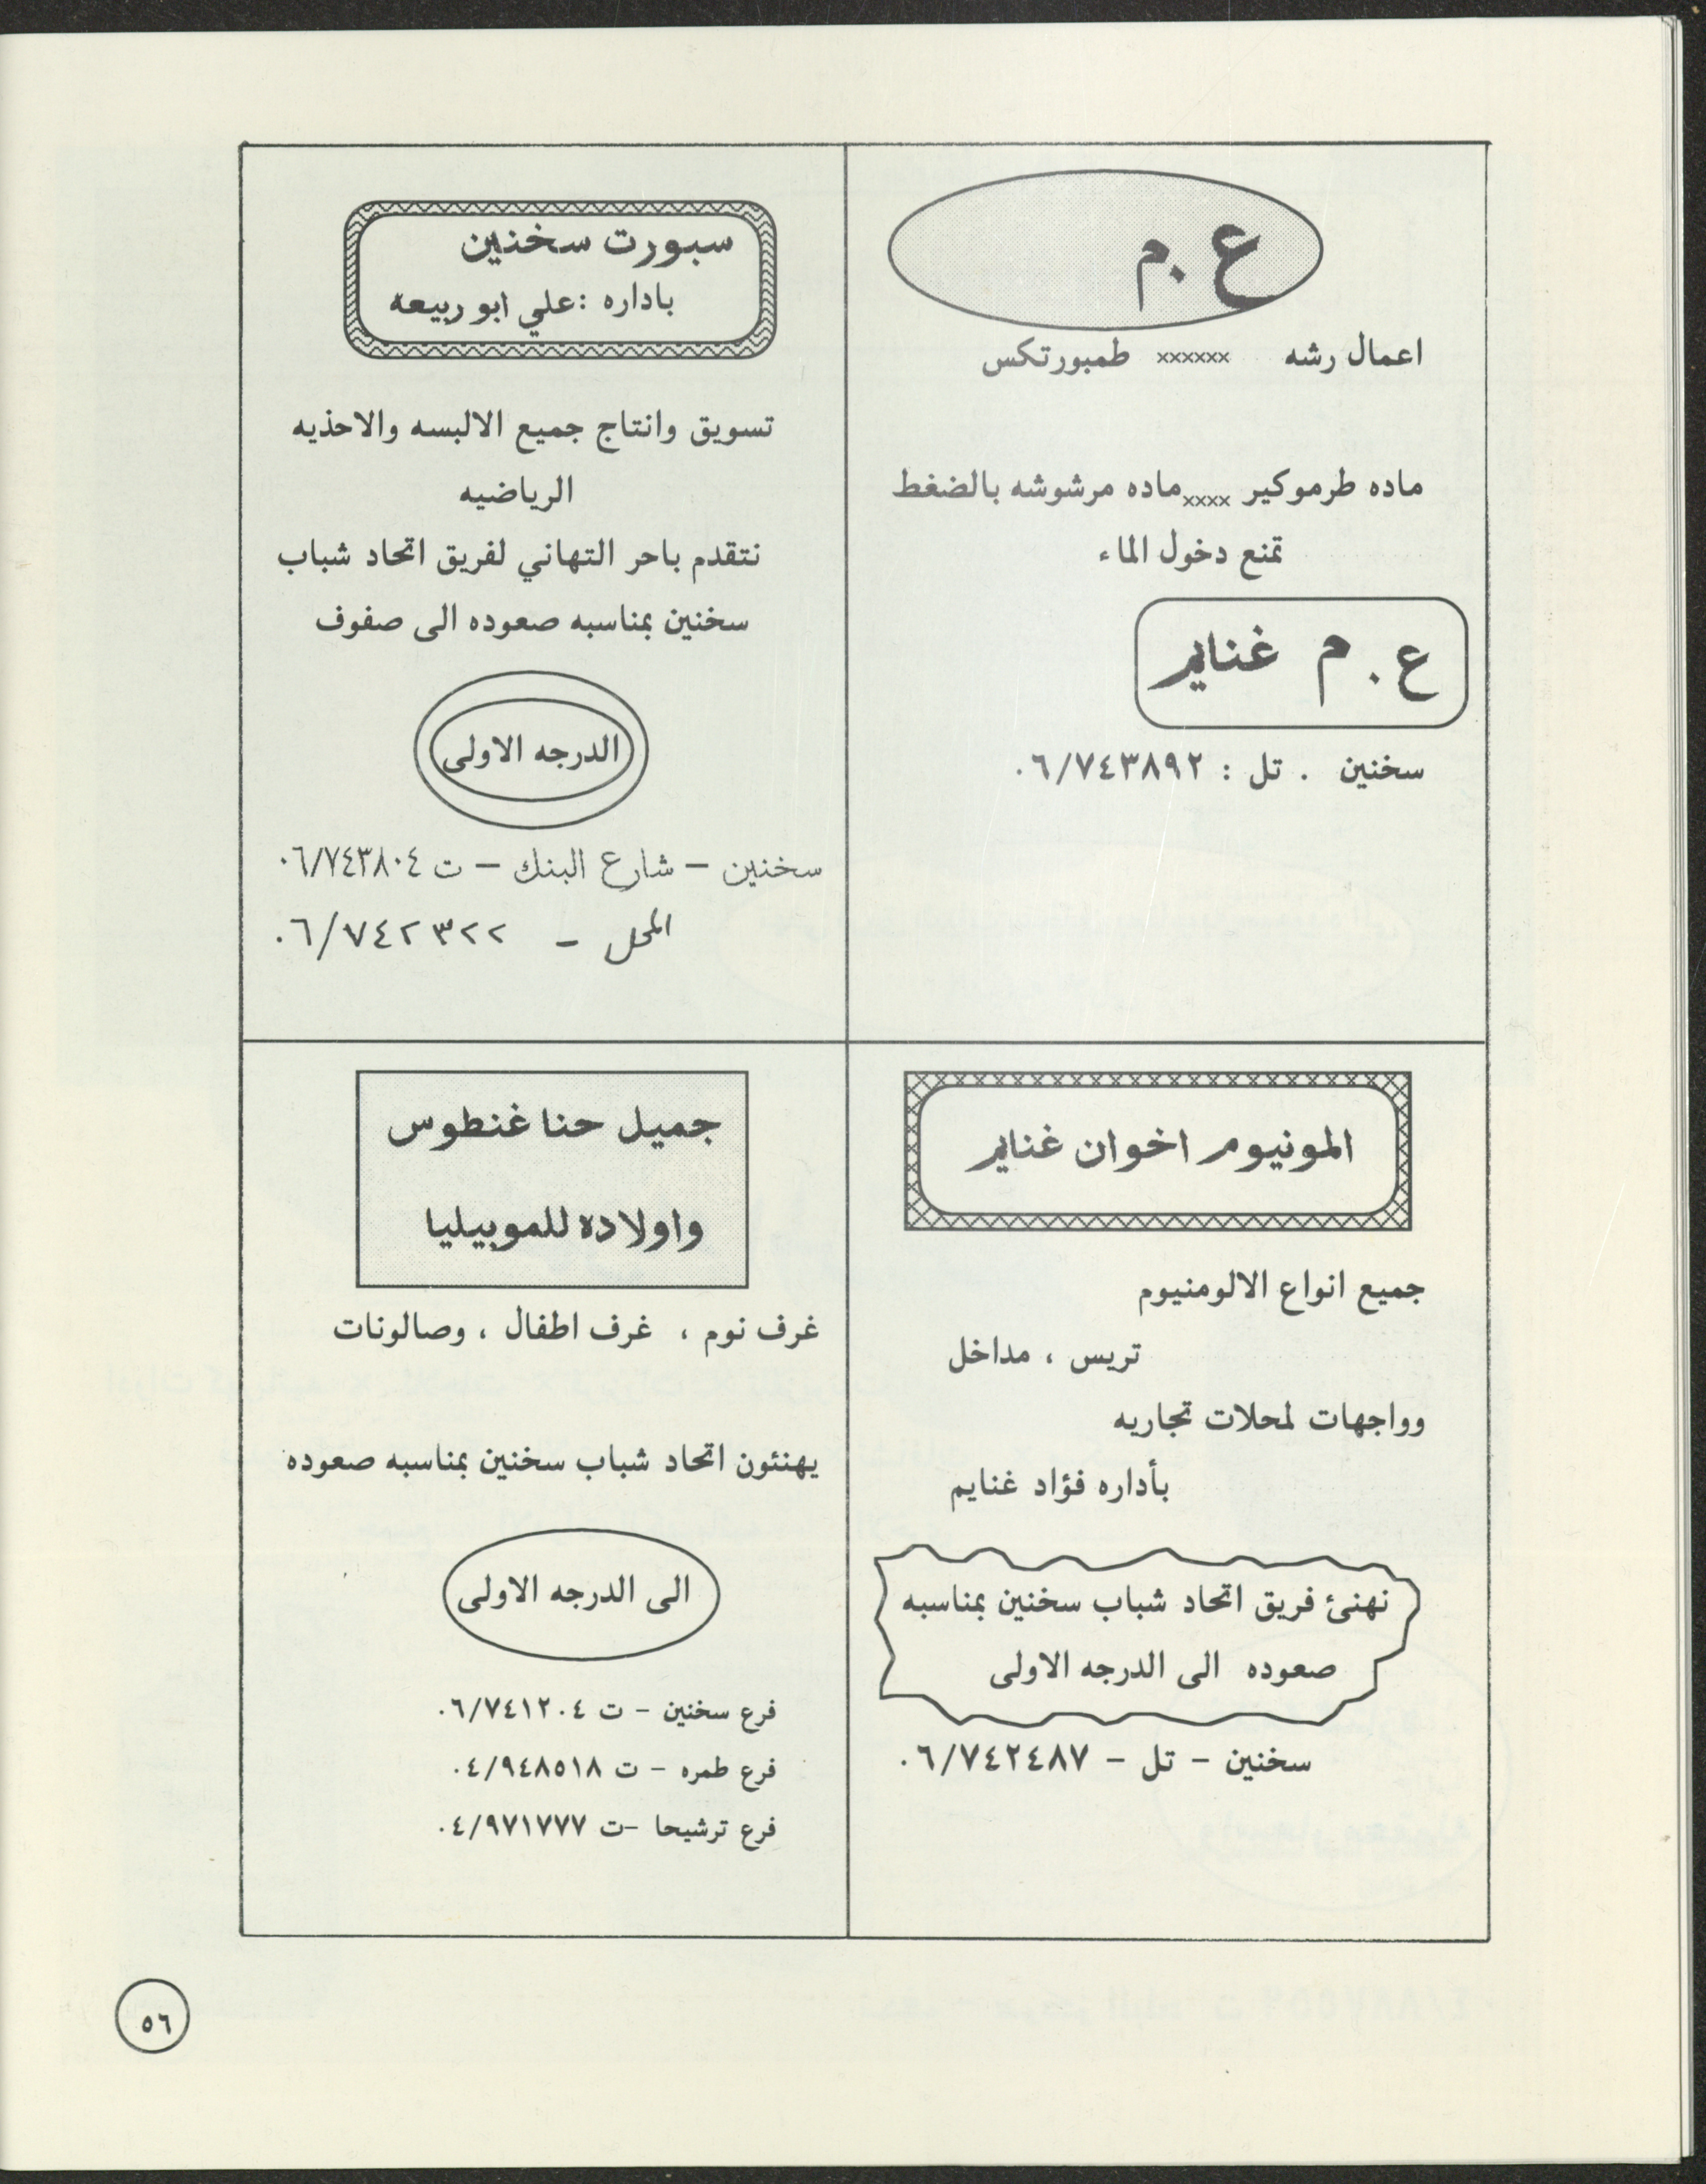 ع . م
اعمال رشه xxxxxx طمبورتكس
ماده طرموكير xxxx ماده مرشوشه بالضغط
تمنع دخول الماء
ع . م غنايم
سخنين . تل : ٠٦/٧٤٣٨٩٢
سبورت سخنين
باداره : علي ابو ربيعه
تسويق وانتاج جميع الالبسه والاحذيه
الرياضيه
نتقدم باحر التهاني لفريق اتحاد شباب
سخنين بمناسبه صعوده الى صفوف
الدرجه الاولى
سخنين – شارع البنك – ت ٠٦/٧٤٣٨٠٤
المحل – ٠٦/٧٤٢٣٢٢
المونيوم اخوان غنايم
جميع انواع الالومنيوم
تريس ، مداخل
وواجهات لمحلات تجاريه
بأداره فؤاد غنايم
نهنئ فريق اتحاد شباب سخنين بمناسبه
صعوده الى الدرجه الاولى
سخنين – تل – ٠٦/٧٤٢٤٨٧
جميل حنا غنطوس
واولاده للموبيليا
غرف نوم ، غرف اطفال ، وصالونات
يهنئون اتحاد شباب سخنين بمناسبه صعوده
الى الدرجه الاولى
فرع سخنين – ت ٠٦/٧٤١٢٠٤
فرع طمره – ت ٠٤/٩٤٨٥١٨
فرع ترشيحا –ت ٠٤/٩٧١٧٧٧
٥٦